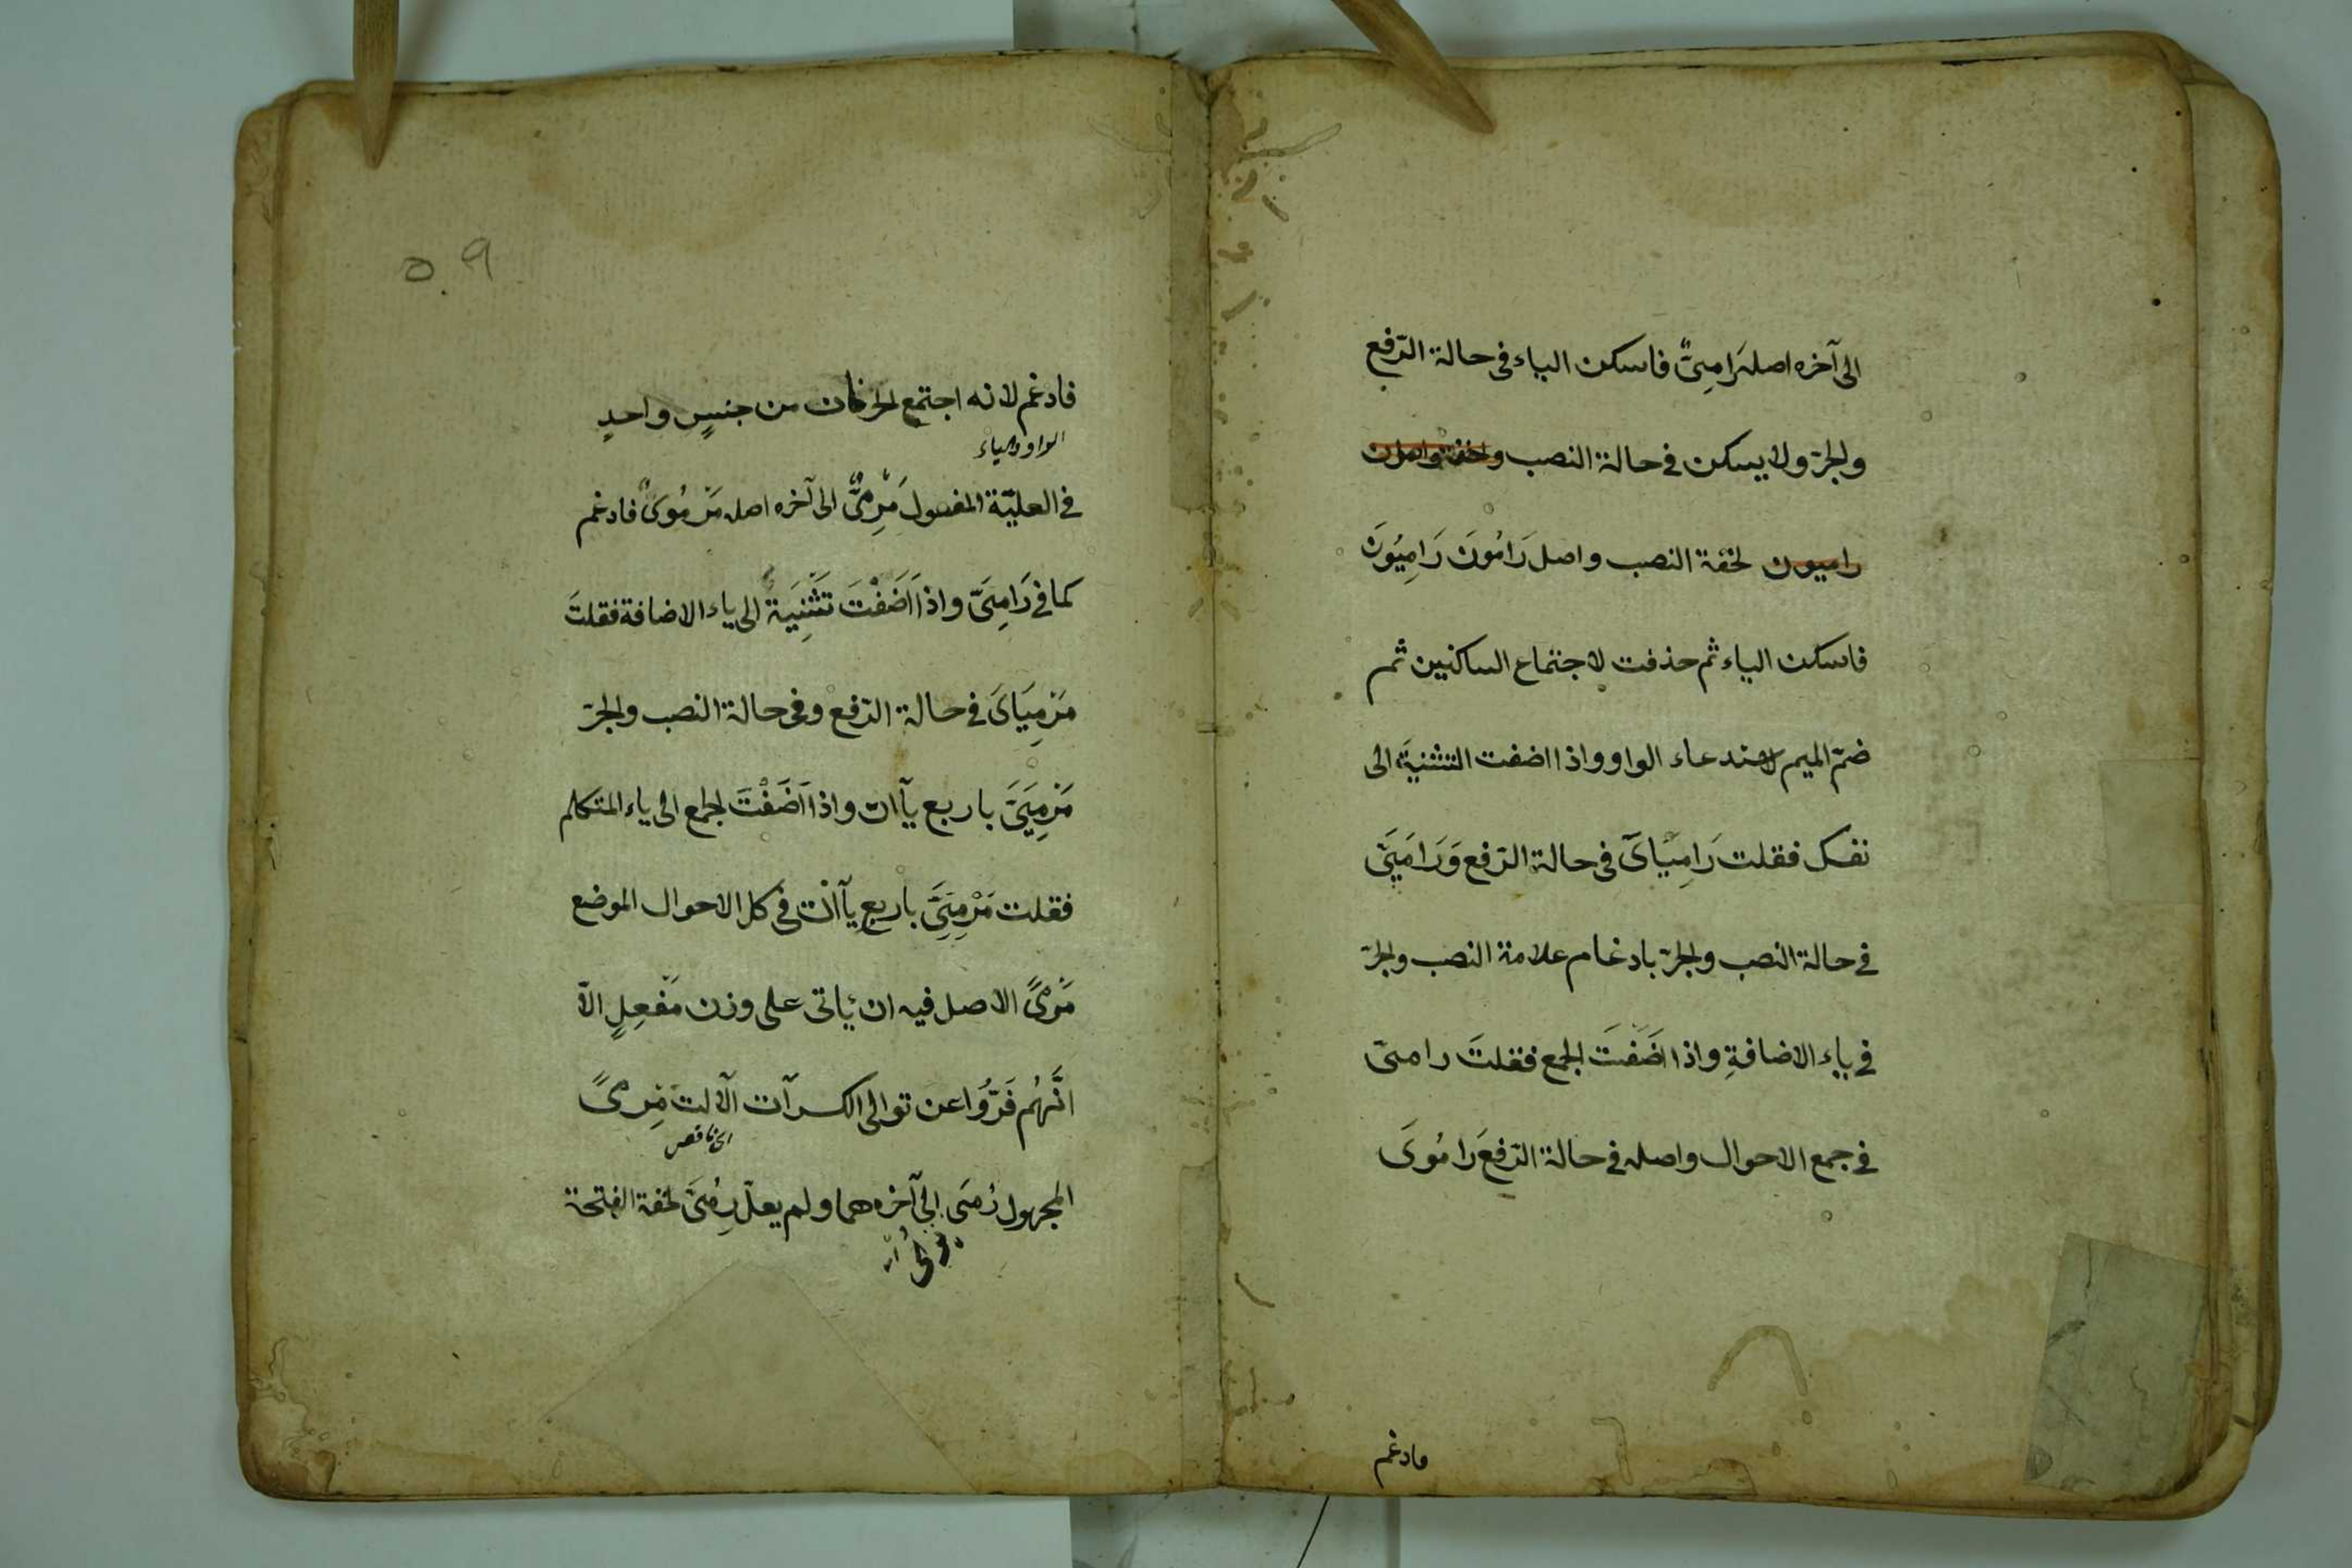 الى آخره اصله رَامِىٌ فاسكن الياء فى حالة الرّفع
والجرّ ولا يسكن فى حالة النصب
راميون لخفة النصب واصل رَامُونَ رَامِيُونَ
فاسكن الياء ثم حذفت لاجتماع الساكنين ثم
ضمّ الميم لاستدعاء الواو واذا اضفت التثنية الى
نفسك فقلت رَامِيَاىَ فى حالة الرّفع وَرَامَيَىَّ
فى حالة النصب والجرّ بادغام علامة النصب والجرّ
فى ياء الاضافةِ واذا اضَفْتَ الجمع فقلتَ رامىّ
فى جمع الاحوال واصله فى حالة الرّفع رَامُوىَ
فادغم
٥٠٩
فادغم لانه اجتمع الحرفان من جنسٍ واحدٍ
الواو والياء
فى العليّة المفعول مَرْمِىٌّ الى آخره اصله مَرْمُوىٌ فادغم
كما فى رَامِىَّ واذا اَضَفْتَ تَثْنِيَة الى ياء الاضافة فقلتَ
مَرْمِيَاىَ فى حالة الرّفع وفى حالة النصب والجرّ
مَرْمِيَىَّ باربع يآات واذا اَضَفْتَ الجمع الى ياء المتكلم
فقلت مَرْمِيَىَّ باربع يآات فى كل الاحوال الموضع
مَرْمًى الاصل فيه ان ئاتى على وزن مَفْعِلٍ الّا
انَّهُم فَرُّوا عن توالى الكسرآت الآلت مِرْمىً
اى ناقص
المجهول رُمِىَ الى آخره هما ولم يعلّ رُمِىَ لخفة الفتحة